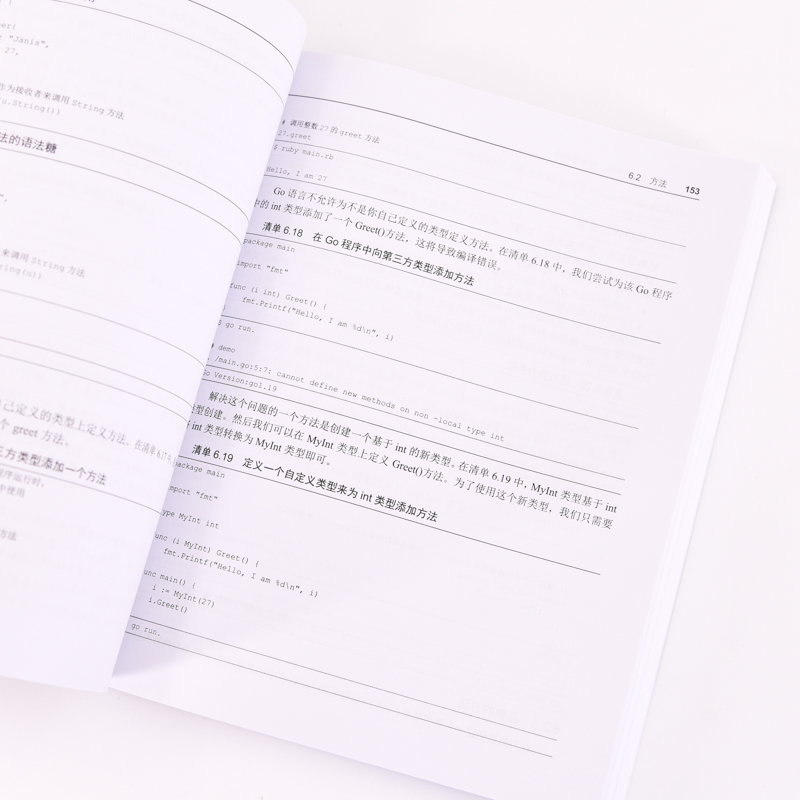 "Janis",
27,
作为接收者来调用 String 方法
u.String())
法的语法糖
来调用 String 方法
ring(u))
己定义的类型上定义方法。在清单 6.17 中
个 greet 方法。
三方类型添加一个方法
程序运行时,
中使用
方法
6.2 方法 153
# 调用整数 27 的 greet 方法
27.greet
$ ruby main.rb
Hello, I am 27
Go 语言不允许为不是你自己定义的类型定义方法。在清单 6.18 中,我们尝试为该 Go 程序
中的 int 类型添加了一个 Greet()方法,这将导致编译错误。
清单 6.18 在 Go 程序中向第三方类型添加方法
package main
import "fmt"
func (i int) Greet() {
fmt.Printf("Hello, I am %d\n", i)
$ go run.
# demo
./main.go:5:7: cannot define new methods on non -local type int
Go Version:go1.19
解决这个问题的一个方法是创建一个基于 int 的新类型。在清单 6.19 中,MyInt 类型基于 int
类型创建。然后我们可以在 MyInt 类型上定义 Greet()方法。为了使用这个新类型,我们只需要
int 类型转换为 MyInt 类型即可。
清单 6.19 定义一个自定义类型来为 int 类型添加方法
package main
import "fmt"
type MyInt int
func (i MyInt) Greet() {
fmt.Printf("Hello, I am %d\n", i)
func main() {
i := MyInt(27)
i.Greet()
go run.